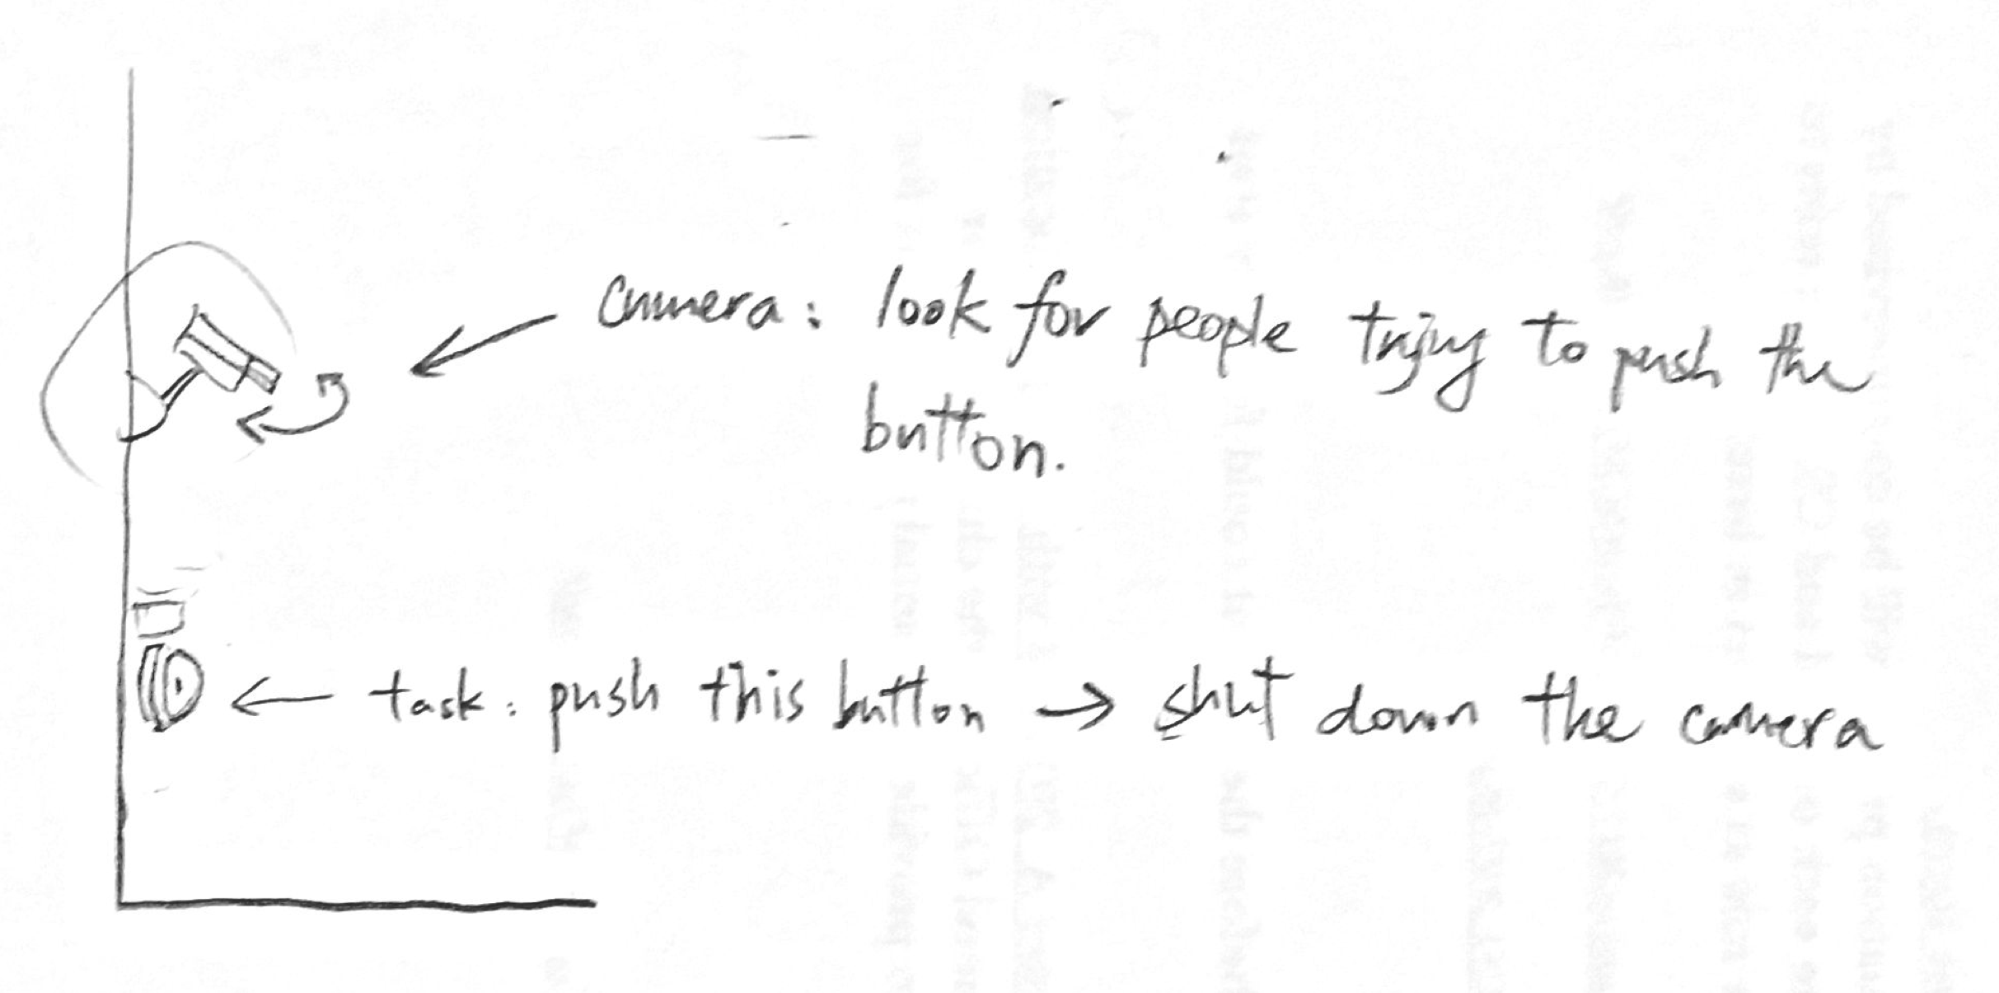 camera: look for people trying to push the
button.
task: push this button → shut down the camera